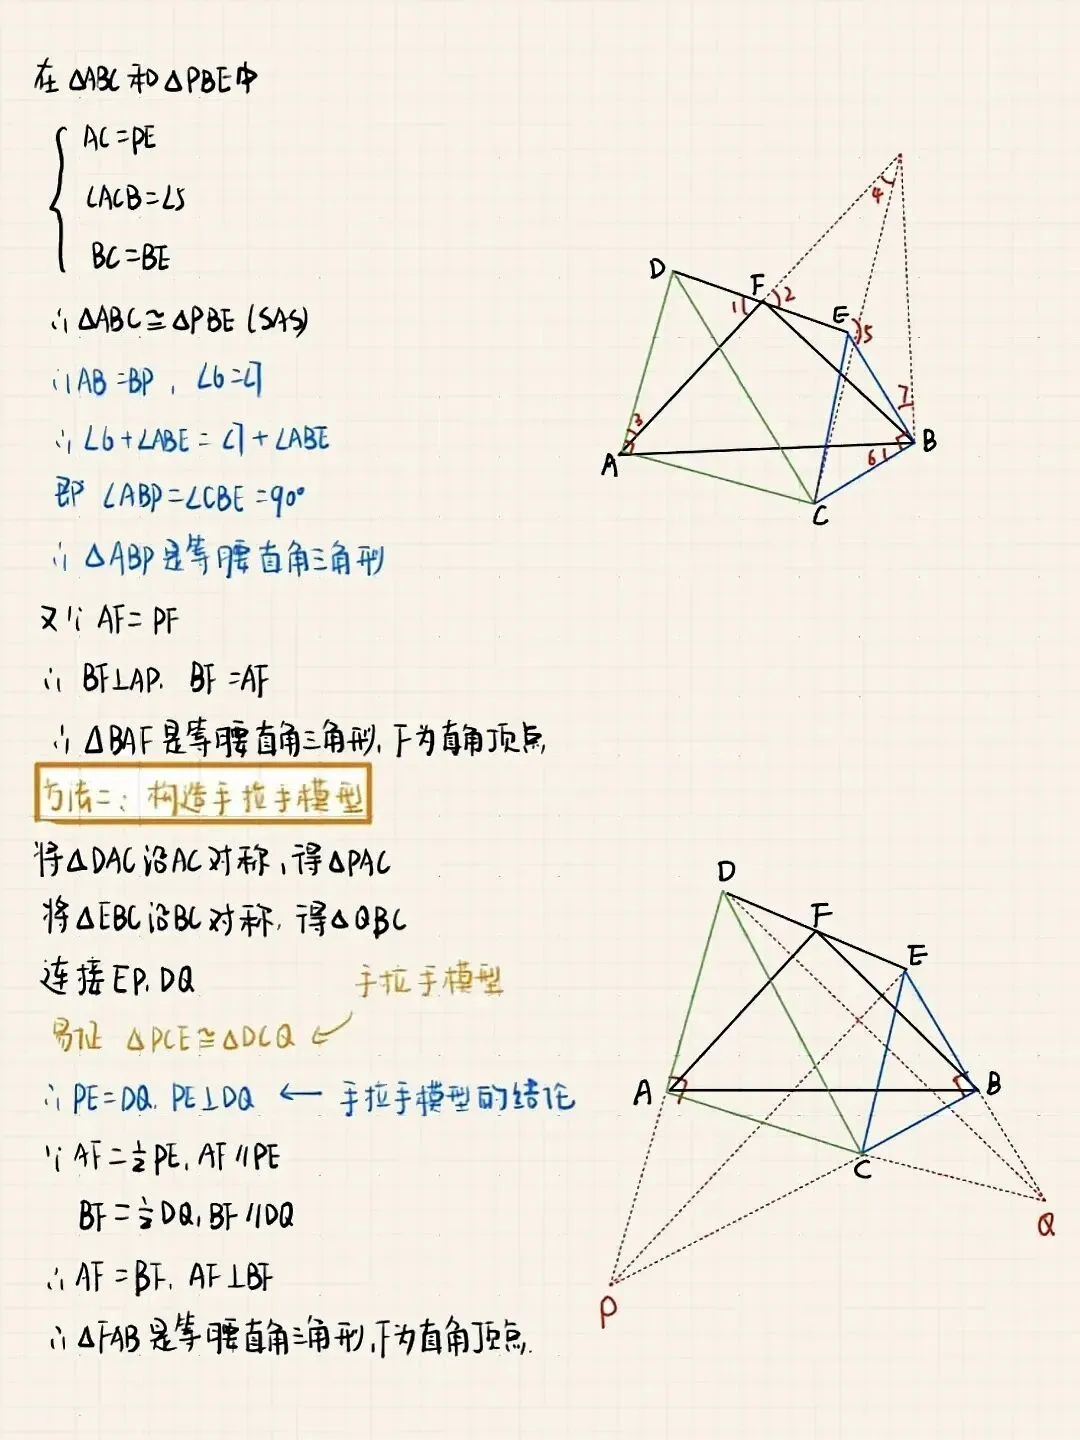 在△ABC和△PBE中
AC=PE
∠ACB=∠5
BC=BE
∴△ABC≌△PBE(SAS)
∴AB=BP,∠6=∠7
∴∠6+∠ABE=∠7+∠ABE
即∠ABP=∠CBE=90°
∴△ABP是等腰直角三角形
又∵AF=PF
∴BF⊥AP.BF=AF
∴△BAF是等腰直角三角形,F为直角顶点
方法二:构造手拉手模型
将△DAC沿AC对称,得△PAC
将△EBC沿BC对称,得△QBC
连接EP.DQ
手拉手模型
易证△PCE≌△DCQ
∴PE=DQ.PE⊥DQ ← 手拉手模型的结论
∵AF=½PE,AF∥PE
BF=½DQ,BF∥DQ
∴AF=BF.AF⊥BF
∴△FAB是等腰直角三角形,F为直角顶点.
4
D
F
1
2
E
5
3
7
A
6
B
C
D
F
E
A
B
C
Q
P